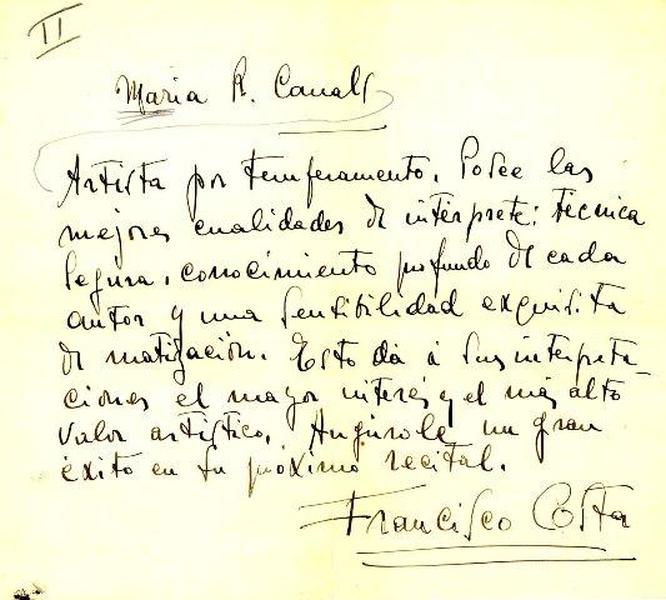 II
Maria R. Canals
Artista por temperamento. Posee las
mejores cualidades de intérprete: técnica
segura, conocimiento profundo de cada
autor y una sensibilidad exquisita
de matización. Esto da á sus interpreta-
ciones el mayor interés y el más alto
valor artístico. Augúrole un gran
éxito en su próximo recital.
Francisco Costa